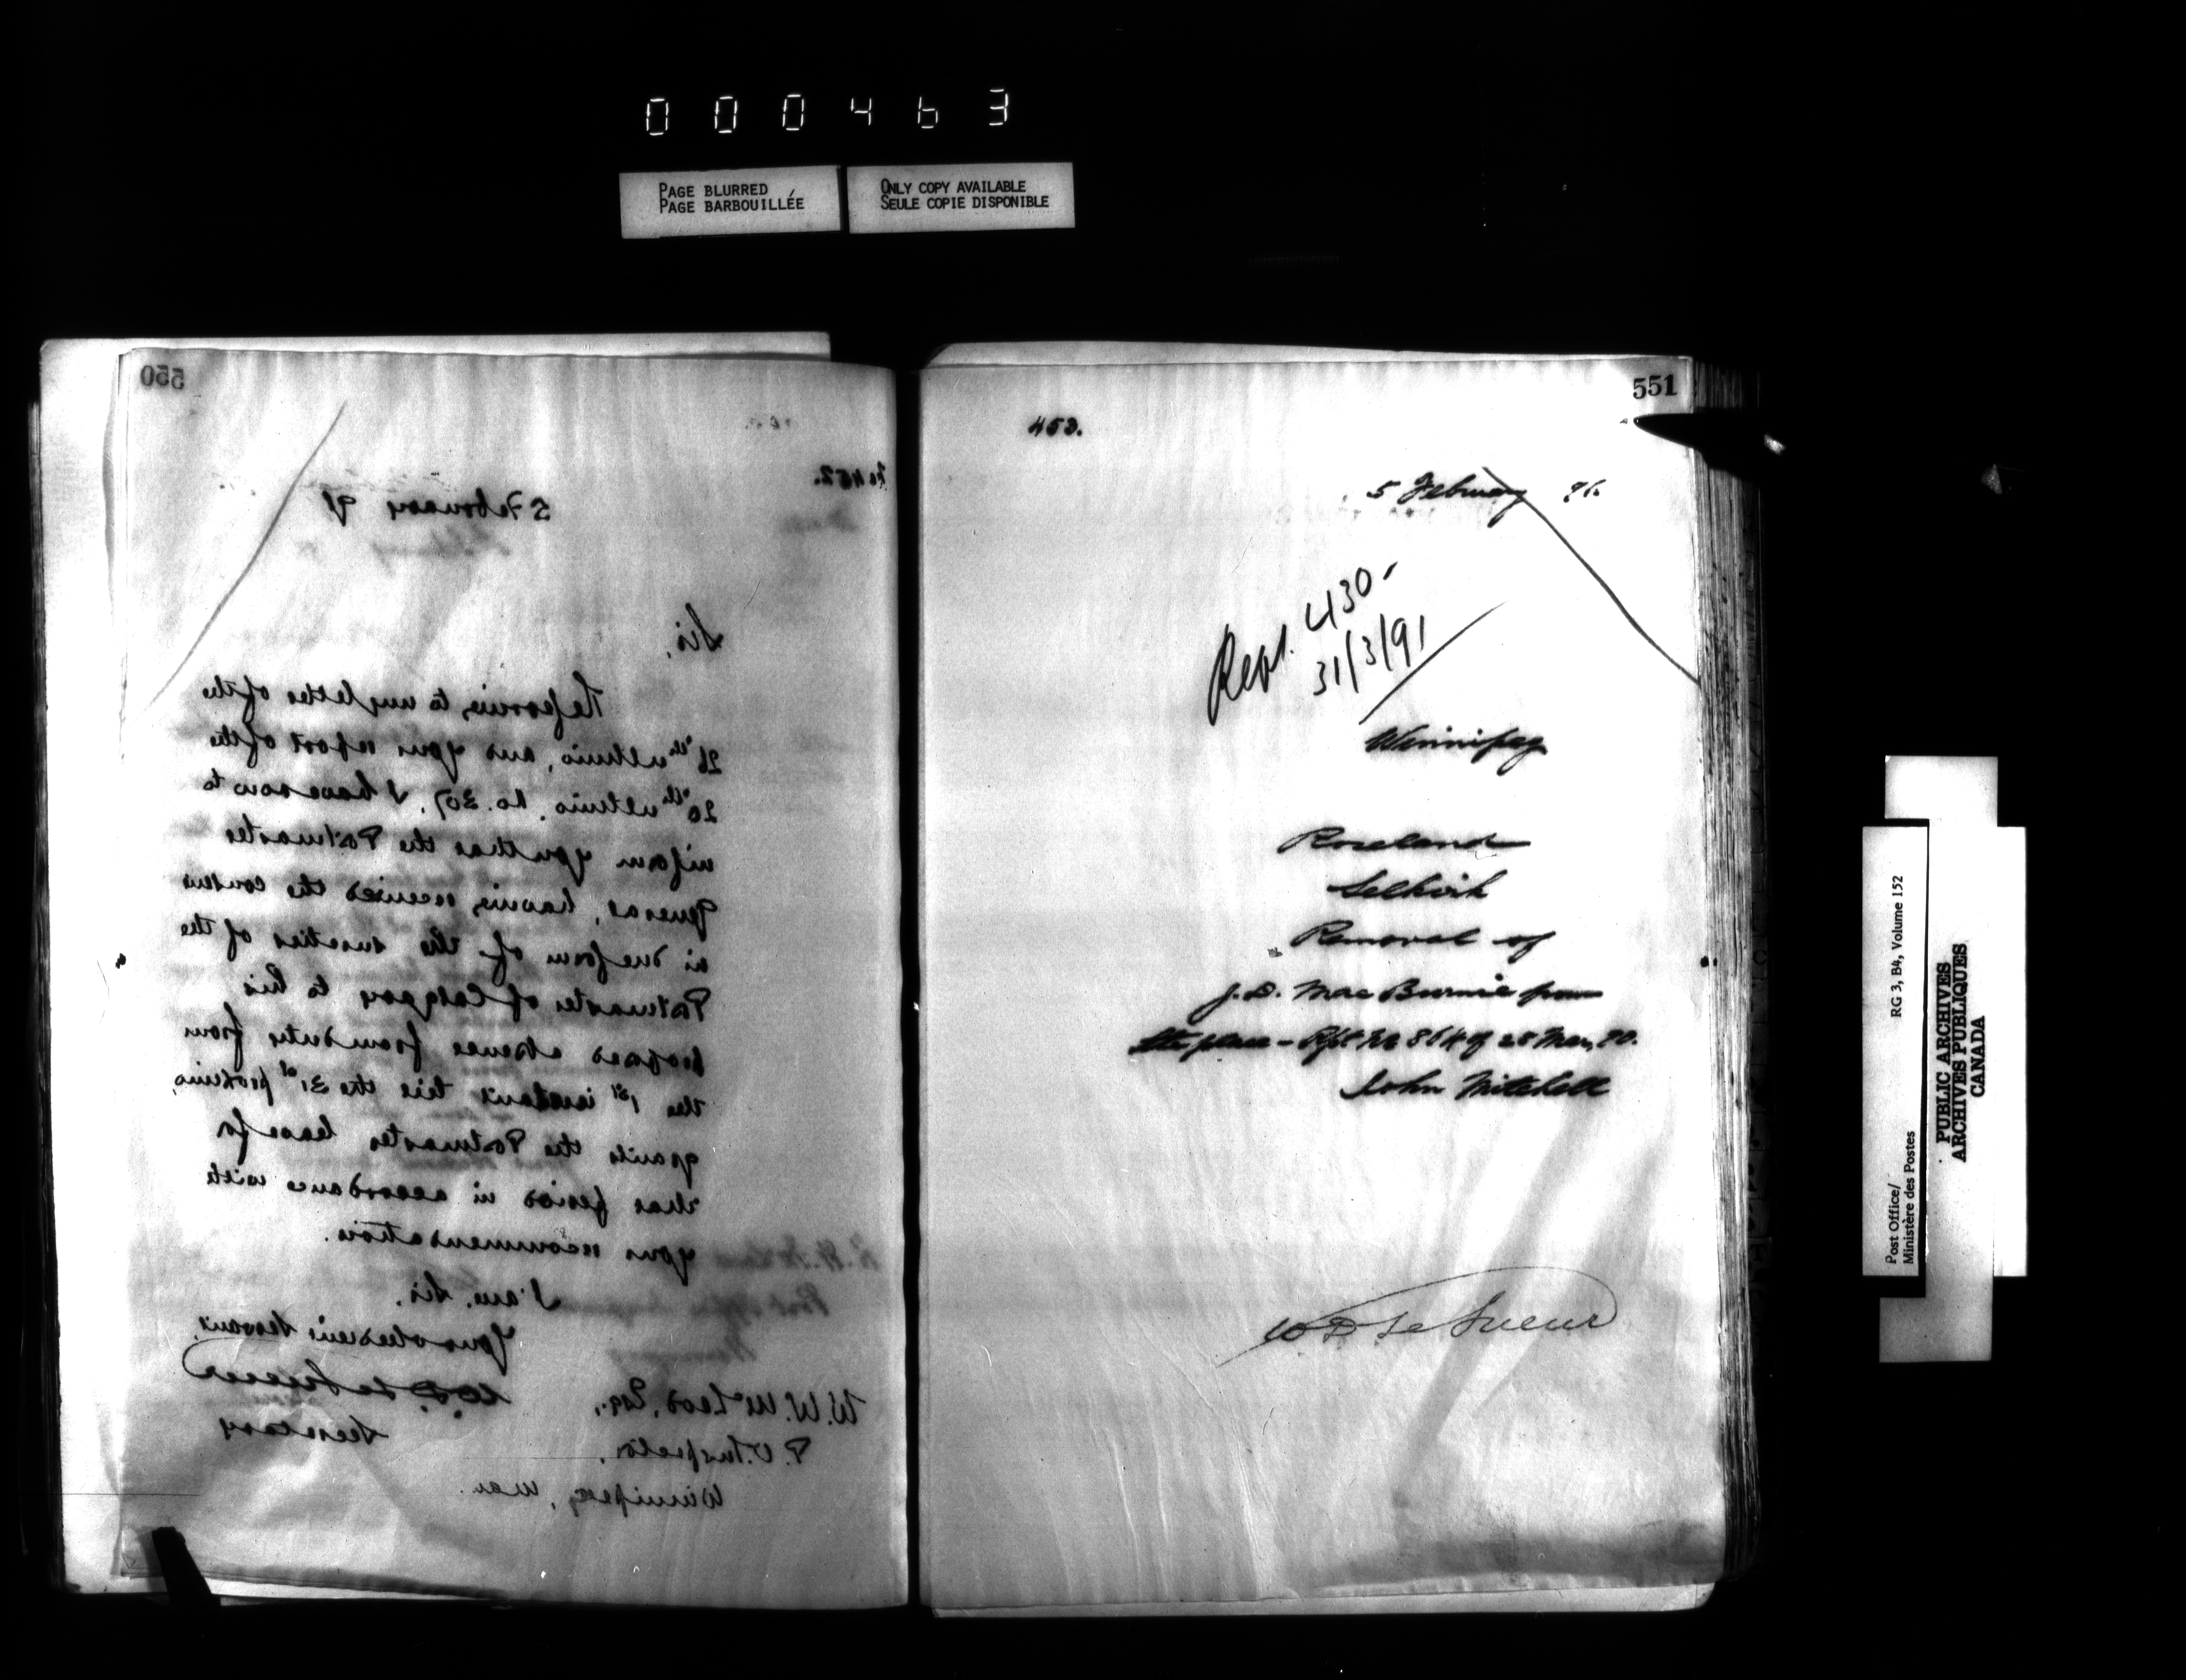 000463
PAGE BLURRED
PAGE BARBOUILLÉE
ONLY COPY AVAILABLE
SEULE COPIE DISPONIBLE
550
No 452.
5 February 91
Sir,
Referring to my letter of the
26th ultimo, and your report of the
20th ultimo, No. 307, I have now to
inform you that the Postmaster
General, having received the consent
in due form of the sureties of the
Postmaster of Calgary to his
proposed absence from duty from
the 1st instant till the 31st proximo,
grants the Postmaster leave for
that period in accordance with
your recommendation.
I am, Sir,
Your obedient servant,
W. D. Le Sueur
Secretary
W. W. McLeod, Esq.,
P. O. Inspector,
Winnipeg, Man.
551
453.
5 February 91.
Rept. 430-
31/3/91
Winnipeg
Roseland
Selkirk
Removal of
J. D. MacBurnie from
the place - Rpt No 864 of 28 Mar, 90.
John Mitchell
W D Le Sueur
Post Office/
Ministère des Postes
RG 3, B4, Volume 152
PUBLIC ARCHIVES
ARCHIVES PUBLIQUES
CANADA